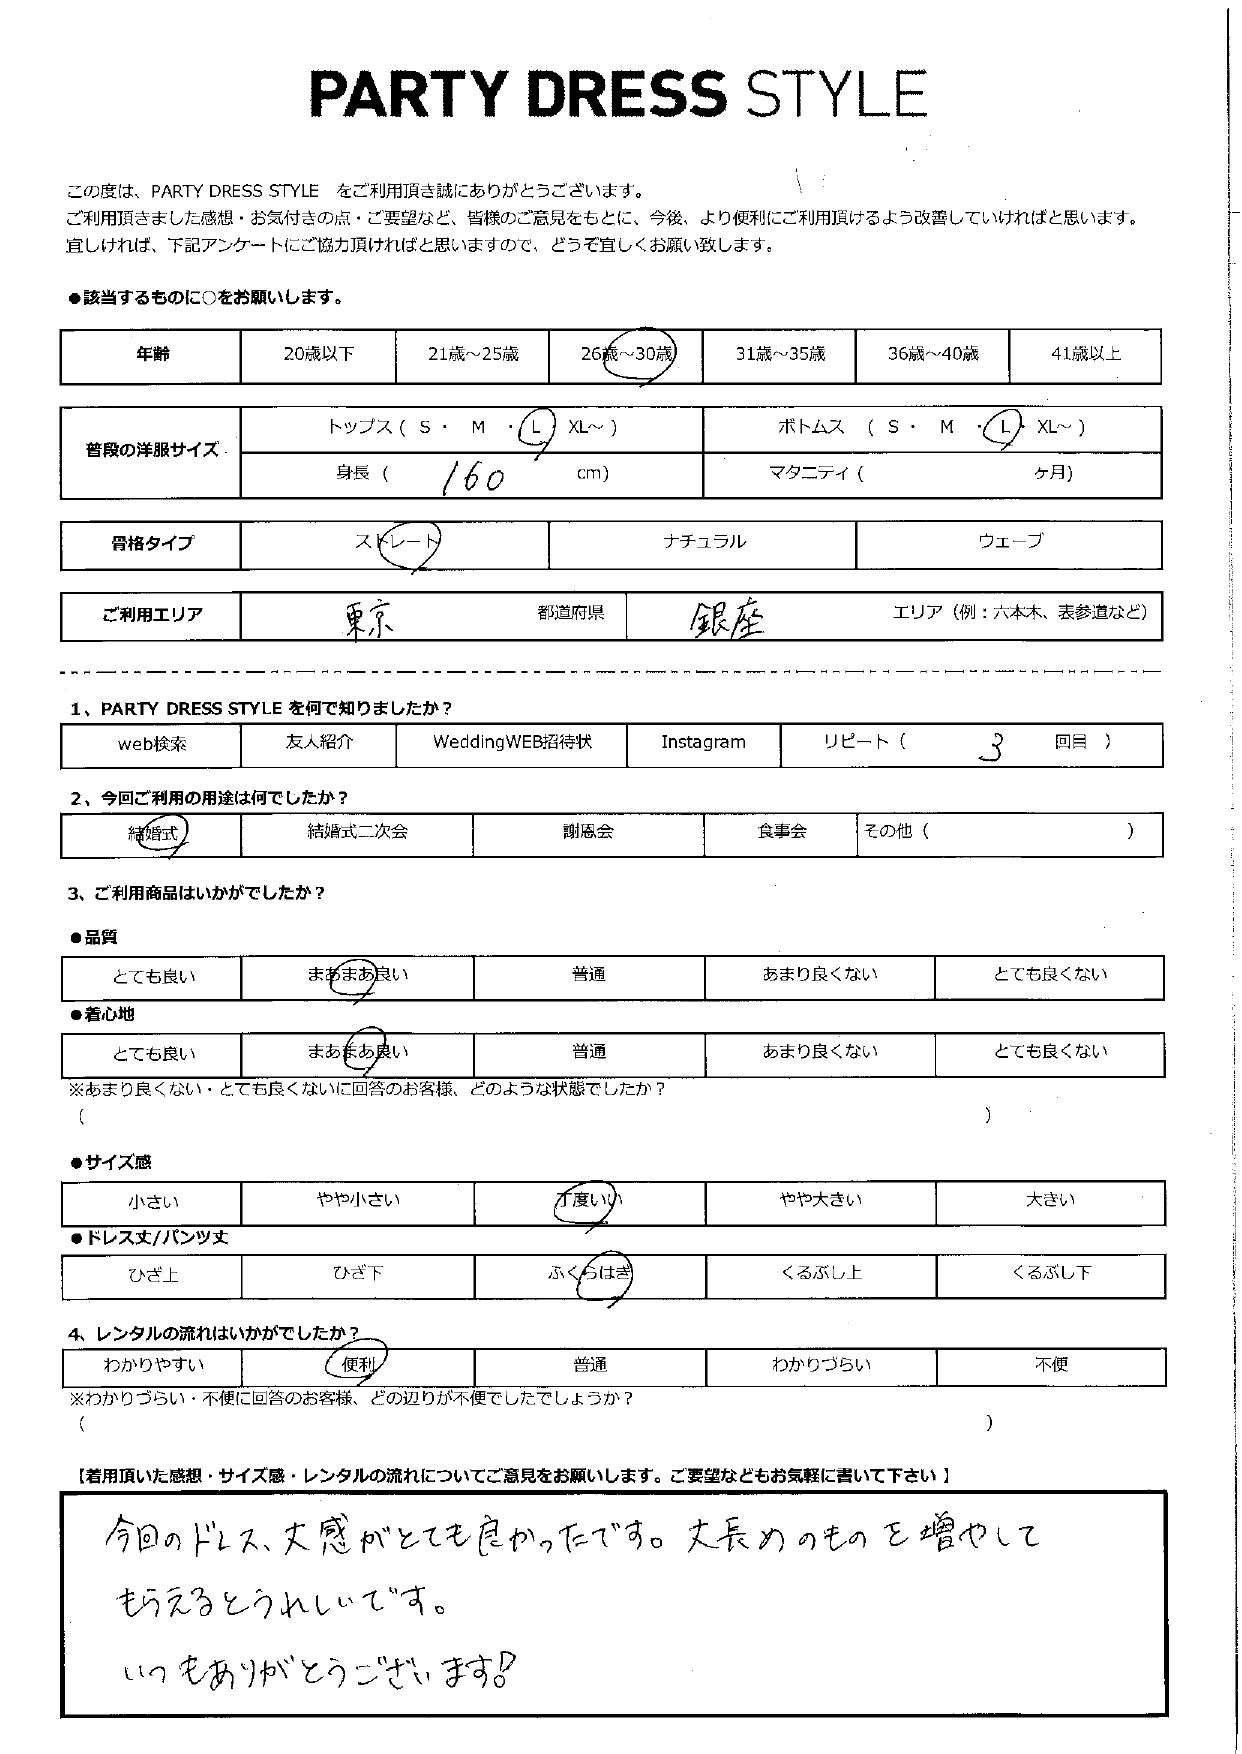 PARTY DRESS STYLE
この度は、PARTY DRESS STYLE をご利用頂き誠にありがとうございます。
ご利用頂きました感想・お気付きの点・ご要望など、皆様のご意見をもとに、今後、より便利にご利用頂けるよう改善していければと思います。
宜しければ、下記アンケートにご協力頂ければと思いますので、どうぞ宜しくお願い致します。
●該当するものに○をお願いします。
年齢 20歳以下 21歳～25歳 26歳～30歳 31歳～35歳 36歳～40歳 41歳以上
普段の洋服サイズ トップス ( S ・ M ・ L XL～ ) ボトムス ( S ・ M ・ L ・ XL～ )
身長 ( 160 cm) マタニティ ( ヶ月)
骨格タイプ ストレート ナチュラル ウェーブ
ご利用エリア 東京 都道府県 銀座 エリア（例：六本木、表参道など）
1、PARTY DRESS STYLE を何で知りましたか？
web検索 友人紹介 WeddingWEB招待状 Instagram リピート ( 3 回目 )
2、今回ご利用の用途は何でしたか？
結婚式 結婚式二次会 謝恩会 食事会 その他 ( )
3、ご利用商品はいかがでしたか？
●品質
とても良い まあまあ良い 普通 あまり良くない とても良くない
●着心地
とても良い まあまあ良い 普通 あまり良くない とても良くない
※あまり良くない・とても良くないに回答のお客様、どのような状態でしたか？
( )
●サイズ感
小さい やや小さい 丁度いい やや大きい 大きい
●ドレス丈/パンツ丈
ひざ上 ひざ下 ふくらはぎ くるぶし上 くるぶし下
4、レンタルの流れはいかがでしたか？
わかりやすい 便利 普通 わかりづらい 不便
※わかりづらい・不便に回答のお客様、どの辺りが不便でしたでしょうか？
( )
【着用頂いた感想・サイズ感・レンタルの流れについてご意見をお願いします。ご要望などもお気軽に書いて下さい】
今回のドレス、丈感がとても良かったです。丈長めのものを増やして
もらえるとうれしいです。
いつもありがとうございます!